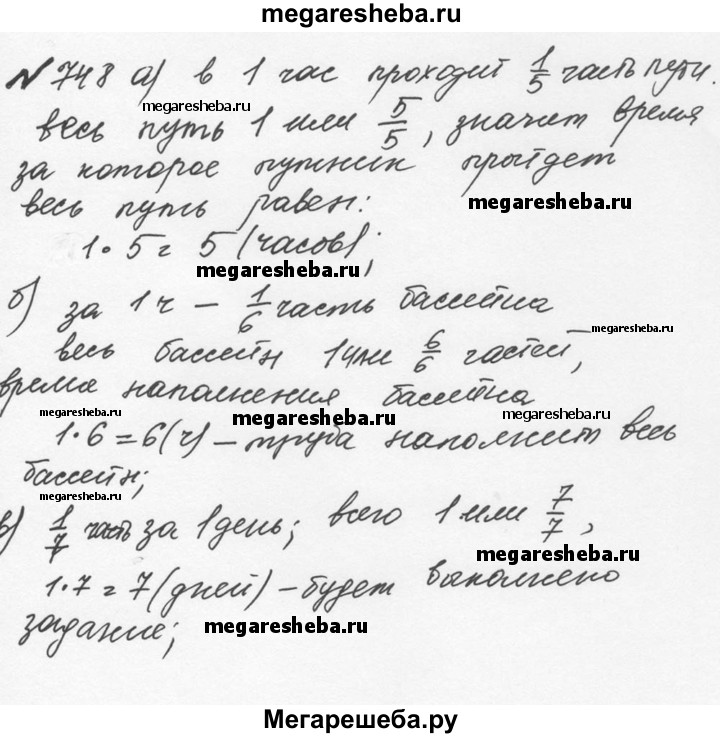 megaresheba.ru
№ 748 а) в 1 час проходит 1/5 часть пути.
megaresheba.ru
весь путь 1 или 5/5, значит время
за которое путник пройдет
megaresheba.ru
весь путь равен:
1·5 = 5 (часов);
megaresheba.ru
б) за 1 ч – 1/6 часть бассейна
megaresheba.ru
весь бассейн 1 или 6/6 частей,
время наполнения бассейна
megaresheba.ru megaresheba.ru megaresheba.ru
1·6 = 6 (ч) – труба наполнит весь
бассейн;
megaresheba.ru
в) 1/7 часть за 1 день; всего 1 или 7/7,
megaresheba.ru
1·7 = 7 (дней) – будет выполнено
задание;
megaresheba.ru
Мегарешеба.ру